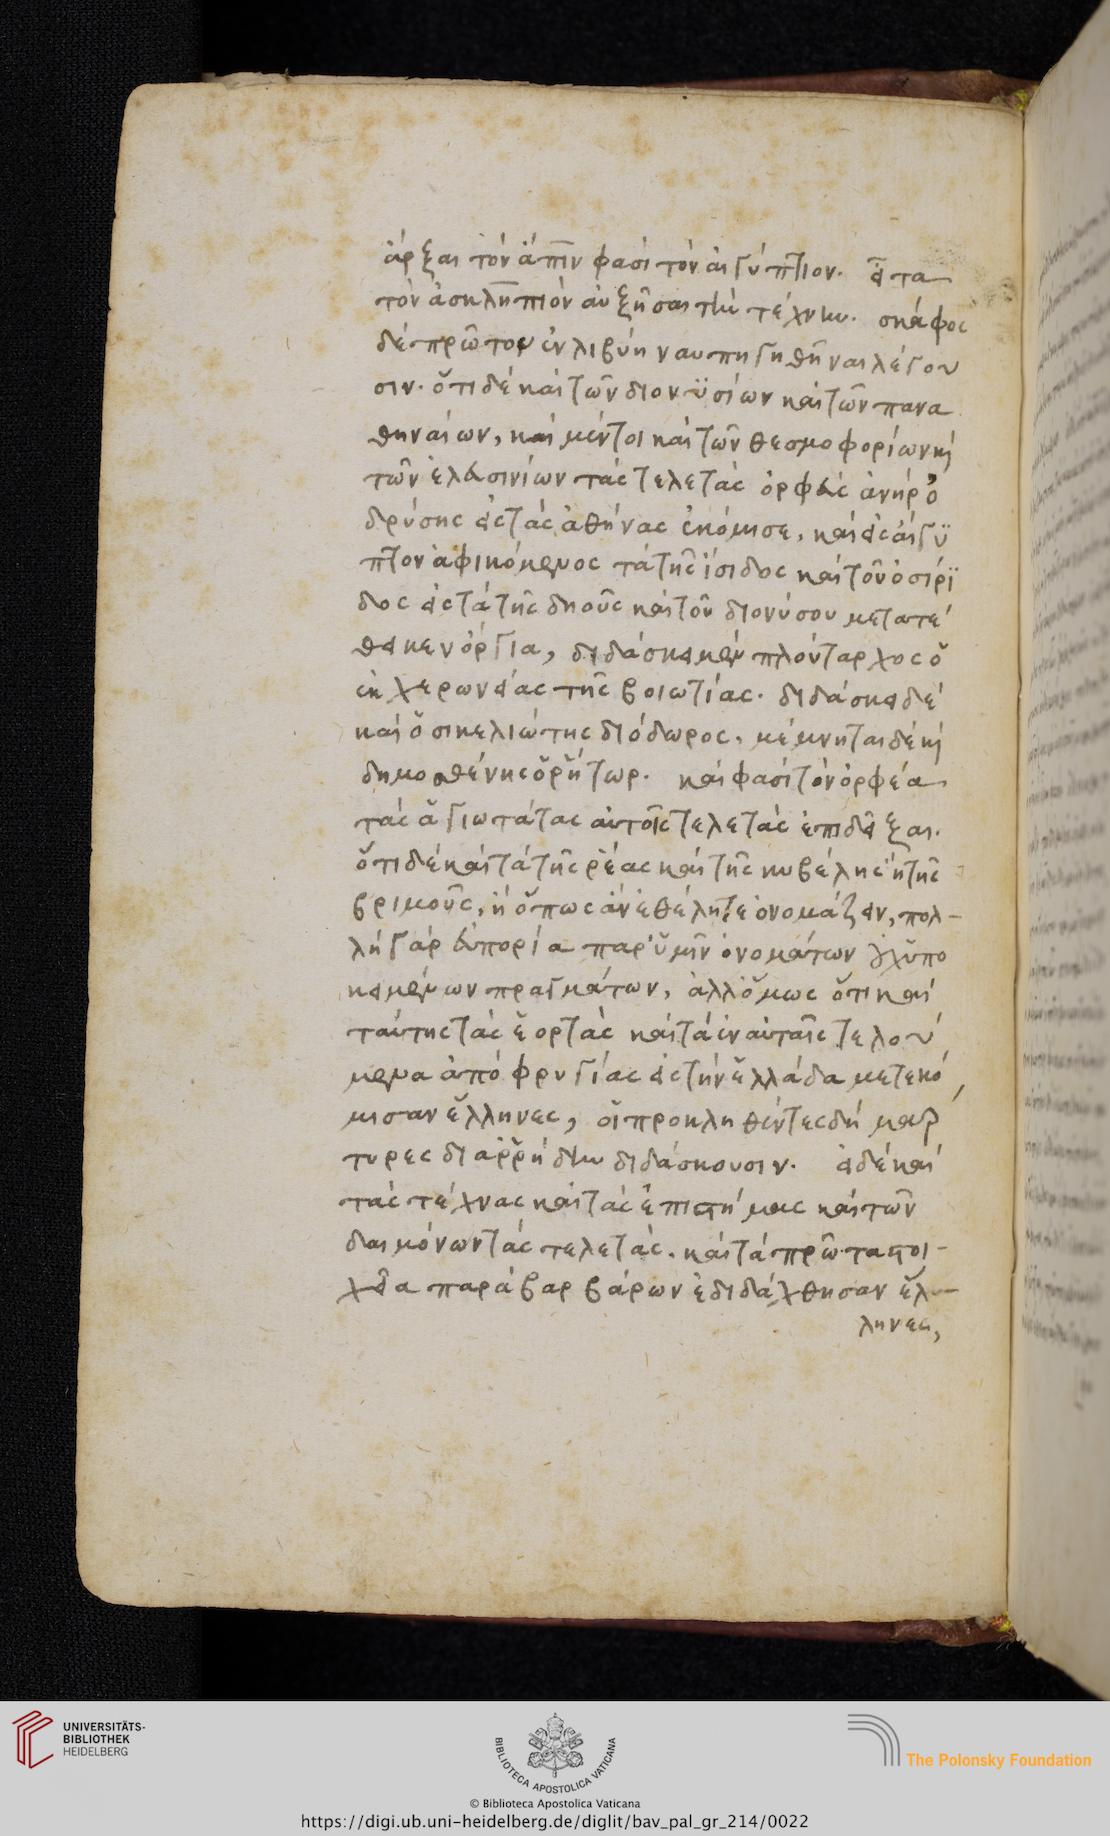 ἄρξαι τὸν ἄπιν φασὶ τὸν αἰγύπτιον. εἶτα
τὸν ἀσκληπιὸν αὐξῆσαι τὴν τέχνην. σκάφος
δὲ πρῶτον ἐν λιβύῃ ναυπηγηθῆναι λέγου
σιν. ὅτι δὲ καὶ τῶν διονϋσίων καὶ τῶν πανα
θηναίων, καὶ μέντοι καὶ τῶν θεσμοφορίων κὶ
τῶν ἐλευσινίων τὰς τελετὰς ὀρφεὺς ἀνὴρ ὀ
δρύσης εἰς τὰς ἀθήνας ἐκόμισε, καὶ εἰς αἴγϋ
πτον ἀφικόμενος τὰ τῆς ἴσιδος καὶ τοῦ ὀσίρϊ
δος εἰς τὰ τῆς δηοῦς καὶ τοῦ διονύσου μετατέ
θεικεν ὄργια, διδάσκει μὲν πλούταρχος ὁ
ἐκ χερωνείας τῆς βοιωτίας. διδάσκει δὲ
καὶ ὁ σικελιώτης διόδωρος. μέμνηται δὲ κὶ
δημοσθένης ὁ ῥήτωρ. καὶ φασὶ τὸν ὀρφέα
τὰς ἁγιωτάτας αὐτοῖς τελετὰς ἐπιδεῖξαι.
ὅτι δὲ καὶ τὰ τῆς ῥέας καὶ τῆς κυβέλης ἢ τῆς
βριμοῦς, ἢ ὅπως ἂν ἐθέλητε ὀνομάζειν, πολ-
λὴ γὰρ εὐπορία παρ' ὑμῖν ὀνομάτων οὐχ ὑπο
κειμένων πραγμάτων, ἀλλ' ὅμως ὅτι καὶ
ταύτης τὰς ἑορτὰς καὶ τὰ ἐν αὐταῖς τελού
μενα ἀπὸ φρυγίας εἰς τὴν ἑλλάδα μετεκό
μισαν ἕλληνες, οἱ προκληθέντες δὴ μάρ
τυρες διαρρήδην διδάσκουσιν. εἰ δὲ καὶ
τὰς τέχνας καὶ τὰς ἐπιστήμας καὶ τῶν
δαιμόνων τὰς τελετὰς. καὶ τὰ πρῶτα στοι-
χεῖα παρὰ βαρβάρων ἐδιδάχθησαν ἕλ-
ληνες,
UNIVERSITÄTS-
BIBLIOTHEK
HEIDELBERG
BIBLIOTECA APOSTOLICA VATICANA
The Polonsky Foundation
© Biblioteca Apostolica Vaticana
https://digi.ub.uni-heidelberg.de/diglit/bav_pal_gr_214/0022